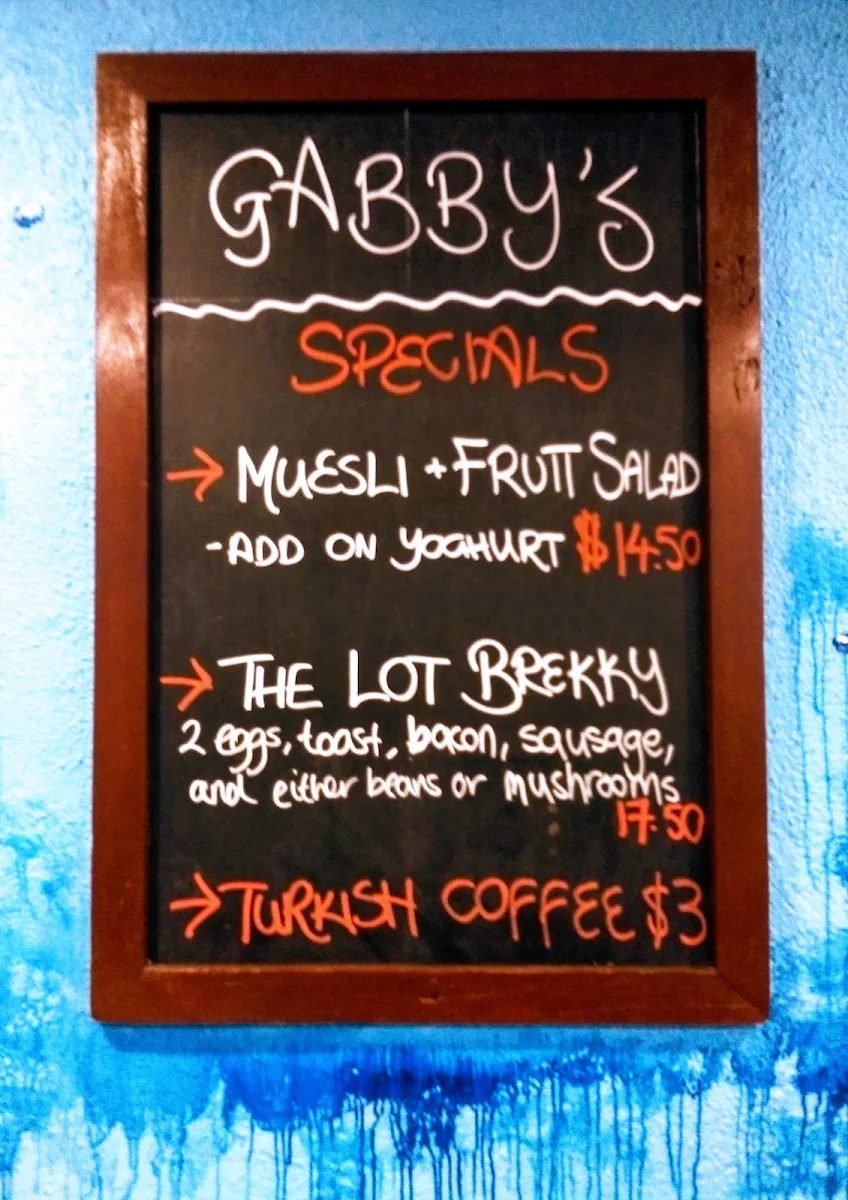 GABBY'S
SPECIALS
→ MUESLI + FRUIT SALAD
- ADD ON YOGHURT $14.50
→ THE LOT BREKKY
2 eggs, toast, bacon, sausage,
and either beans or mushrooms
17.50
→ TURKISH COFFEE $3